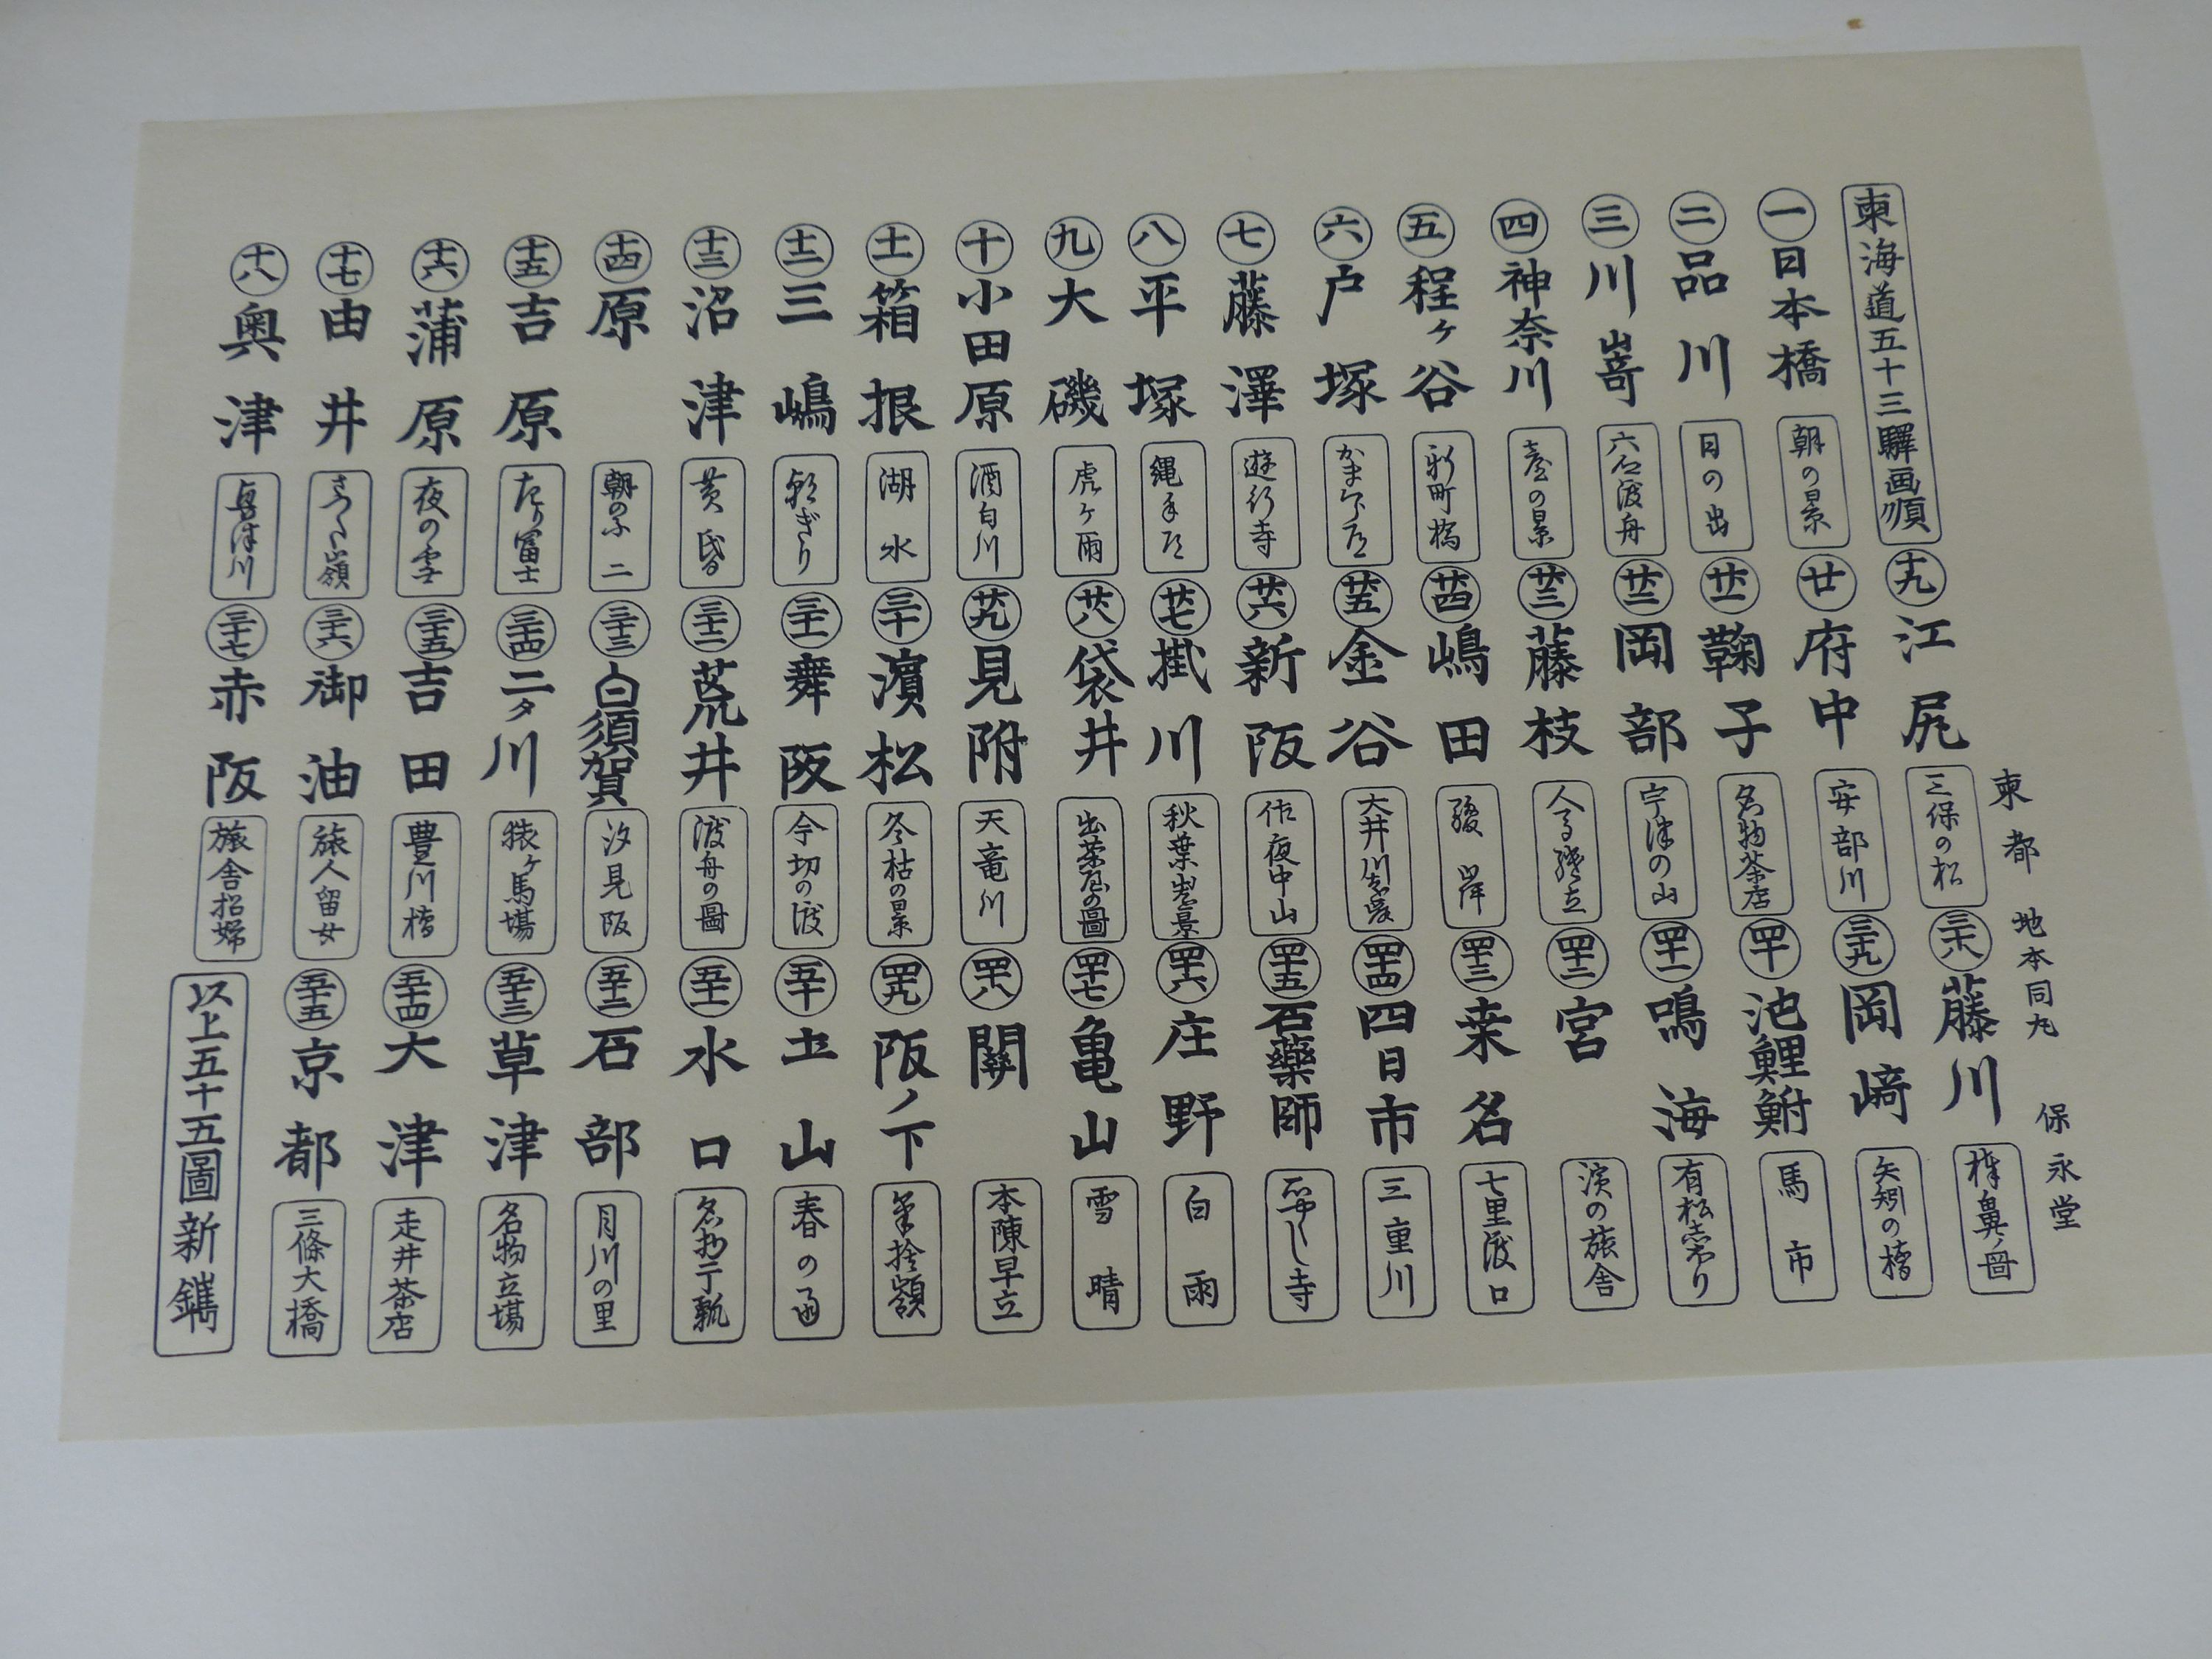 東海道五十三驛画順
一 日本橋 朝の景
二 品川 日の出
三 川嵜 六合渡舟
四 神奈川 臺の景
五 程ヶ谷 新町橋
六 戸塚
七 藤澤 遊行寺
八 平塚 縄手道
九 大磯 虎ヶ雨
十 小田原 酒匂川
十一 箱根 湖水
十二 三嶋 朝ぎり
十三 沼津 黄昏
十四 原 朝のふ二
十五 吉原 左り富士
十六 蒲原 夜の雪
十七 由井 さった嶺
十八 奥津 興津川
十九 江尻 三保の松
廿 府中 安部川
廿一 鞠子 名物茶店
廿二 岡部 宇津の山
廿三 藤枝 人馬継立
廿四 嶋田 駿岸
廿五 金谷 大井川遠岸
廿六 新阪 佐夜中山
廿七 掛川 秋葉山遠景
廿八 袋井 出茶屋の圖
廿九 見附 天竜川
三十 濱松 冬枯の景
三十一 舞阪 今切の渡
三十二 荒井 渡舟の圖
三十三 白須賀 汐見阪
三十四 二タ川 猿ヶ馬場
三十五 吉田 豊川橋
三十六 御油 旅人留女
三十七 赤阪 旅舎招婦
三十八 藤川 棒鼻ノ圖
三十九 岡﨑 矢矧の橋
四十 池鯉鮒 馬市
四十一 鳴海 有松
四十二 宮 濱の旅舎
四十三 桒名 七里渡口
四十四 四日市 三重川
四十五 石藥師 石やくし寺
四十六 庄野 白雨
四十七 亀山 雪晴
四十八 關 本陳早立
四十九 阪ノ下 筆捨嶺
五十 土山 春の雨
五十一 水口 名物干瓢
五十二 石部 目川の里
五十三 草津 名物立場
五十四 大津 走井茶店
五十五 京都 三條大橋
以上五十五圖新鐫
東都 地本同丸 保永堂